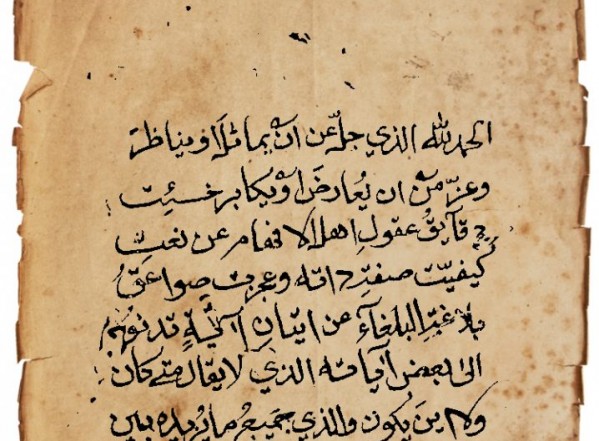 الحمد لله الذي جلّ عن ان يماثل او يناظر
وعزّ من ان يُعارض او يكابر خسئت
دقايقُ عقول اهل الافهام عن نعت
كيفيّت صفت ذاته وعجزت صواعقُ
بلاغة البلغآء عن اتيان آية
الى بعض آياته الذي لا يقال متى كان
ولا اين يكون والذي جميع ما يُريده بين